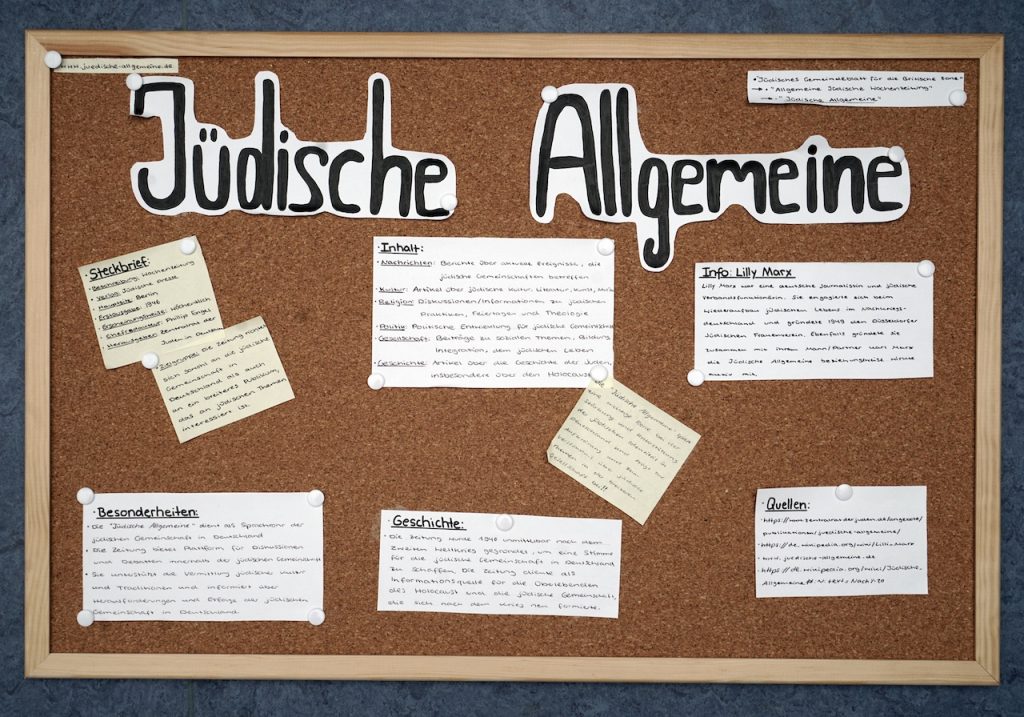 www.juedische-allgemeine.de
Jüdische Allgemeine
• "Jüdisches Gemeindeblatt für die Britische Zone"
→ • "Allgemeine Jüdische Wochenzeitung"
→ • "Jüdische Allgemeine"
• Steckbrief:
• Beschreibung: Wochenzeitung
• Verlag: Jüdische Presse
• Hauptsitz: Berlin
• Erstausgabe: 1946
• Erscheinungsweise: wöchentlich
• Chefredakteur: Philipp Engel
• Herausgeber: Zentralrat der
Juden in Deutschl
• Zielgruppe: Die Zeitung richtet
sich sowohl an die jüdische
Gemeinschaft in
Deutschland als auch
an ein breiteres Publikum,
das an jüdischen Themen
interessiert ist.
• Inhalt:
• Nachrichten: Berichte über aktuelle Ereignisse, die
jüdische Gemeinschaften betreffen
• Kultur: Artikel über jüdische Kultur, Literatur, Kunst, Musik
• Religion: Diskussionen/Informationen zu jüdischen
Praktiken, Feiertagen und Theologie
• Politik: Politische Entwicklung für jüdische Gemeinschaft
• Gesellschaft: Beiträge zu sozialen Themen, Bildung,
Integration, dem jüdischen Leben
• Geschichte: Artikel über die Geschichte der Juden,
insbesondere über den Holocaust
Die "Jüdische Allgemeine" spielt
eine wichtige Rolle bei der
Stärkung und Unterstützung
der jüdischen Identität in
Deutschland und trägt zur
Aufklärung und zum
Verständnis über jüdische
Themen in der breiteren
Gesellschaft bei!!
Info: Lilly Marx
Lilly Marx war eine deutsche Journalistin und jüdische
Verbandsfunktionärin. Sie engagierte sich beim
Wiederaufbau jüdischen Lebens im Nachkriegs-
deutschland und gründete 1949 den Düsseldorfer
Jüdischen Frauenverein. Ebenfalls gründete sie
zusammen mit ihrem Mann/Partner Marx
die Jüdische Allgemeine beziehungsweise wirkte
mit.
• Besonderheiten:
• Die "Jüdische Allgemeine" dient als Sprachrohr der
jüdischen Gemeinschaft in Deutschland
• Die Zeitung bietet Plattform für Diskussionen
und Debatten innerhalb der jüdischen Gemeinschaft
• Sie unterstützt die Vermittlung jüdischer Kultur
und Traditionen und informiert über
Herausforderungen und Erfolge der jüdischen
Gemeinschaft in Deutschland.
Geschichte:
• Die Zeitung wurde 1946 unmittelbar nach dem
Zweiten Weltkrieg gegründet, um eine Stimme
für die jüdische Gemeinschaft in Deutschland
zu schaffen. Die Zeitung diente als
Informationsquelle für die Überlebenden
des Holocaust und die jüdische Gemeinschaft,
die sich nach dem Krieg neu formierte.
Quellen:
• https://www.zentralratderjuden.de/angebote/
publikationen/juedische-allgemeine/
• https://de.wikipedia.org/wiki/Lilli-Marx
• www.juedische-allgemeine.de
• https://de.wikipedia.org/wiki/Jüdische_
Allgemeine